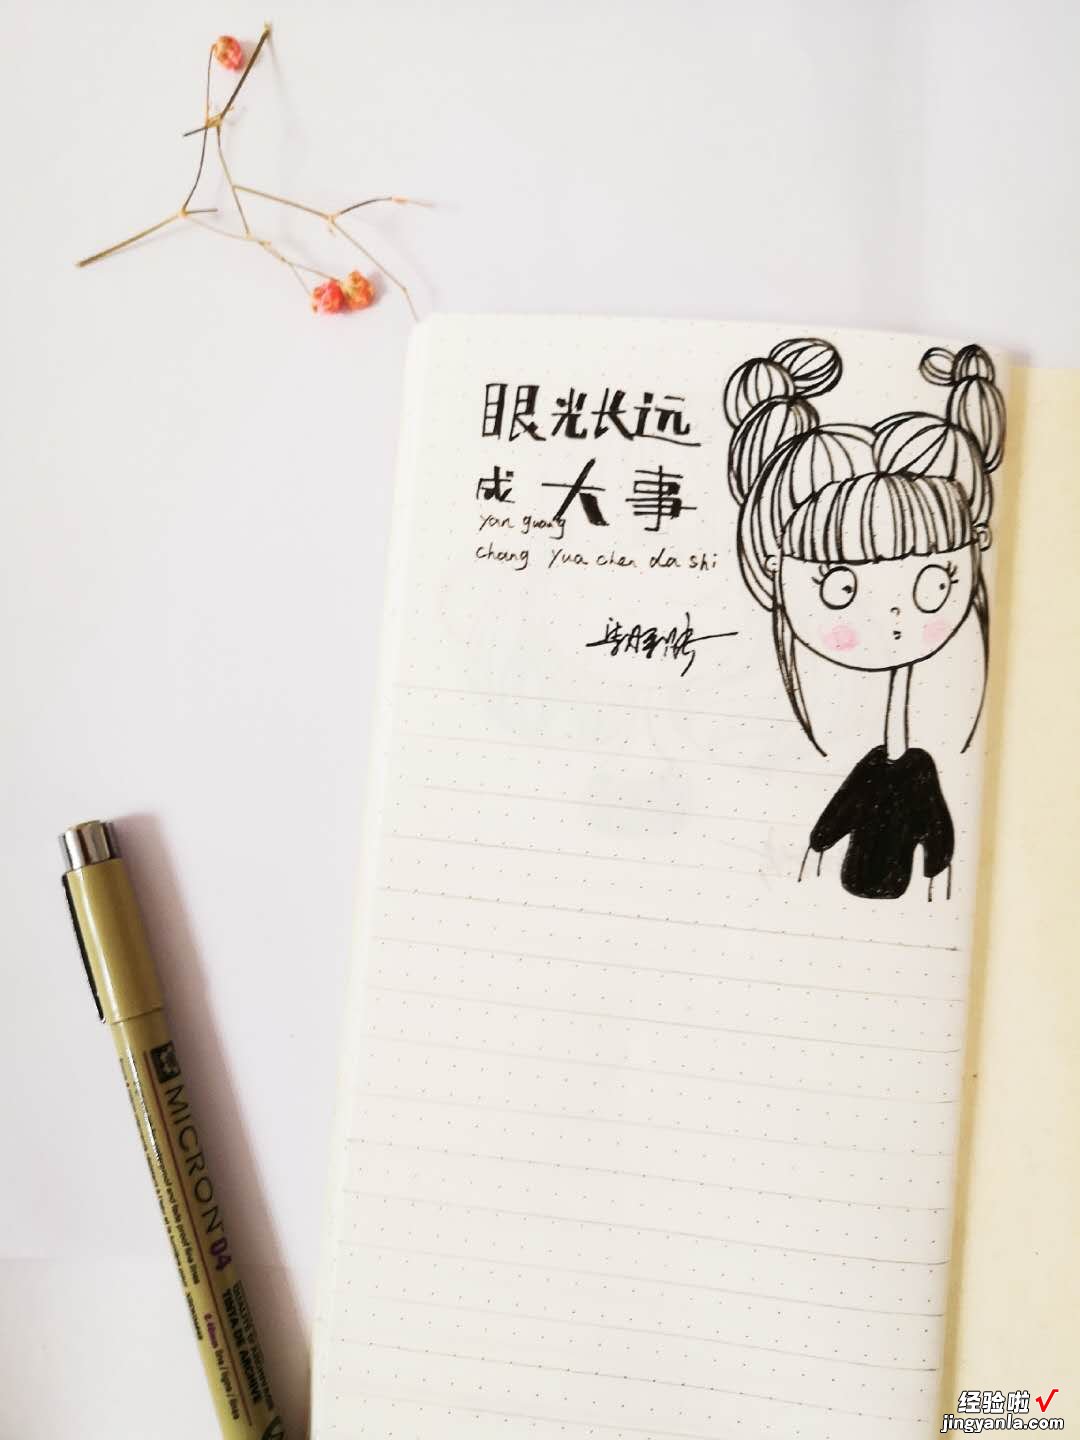 眼光长远
成大事
yan guang
chang yua chen da shi
MICRON 04
TINTA DE ARCHIVE
经验啦√
jingyanla.com